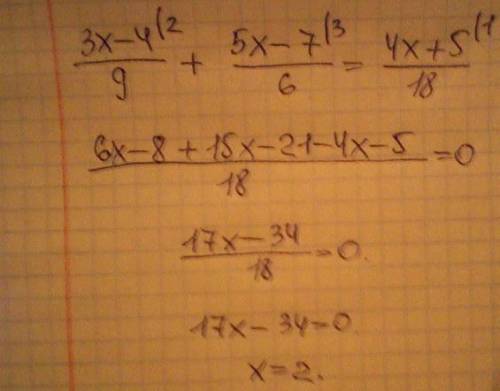 (3x-4)/9 (2 + (5x-7)/6 (3 = (4x+5)/18 (1
(6x-8+15x-21-4x-5)/18 = 0
(17x-34)/18 = 0.
17x-34=0
x=2.